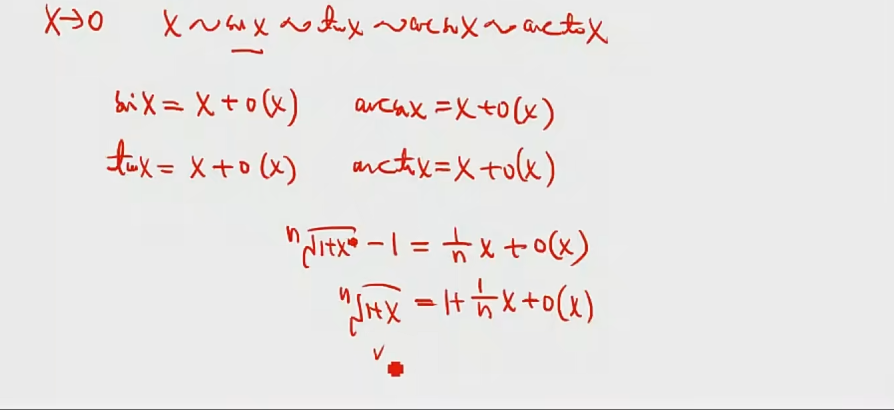 x→0 x ~ sin x ~ tan x ~ arcsin x ~ arctan x
sin x = x + o(x) arcsin x = x + o(x)
tan x = x + o(x) arctan x = x + o(x)
ⁿ√(1+x) - 1 = 1/n x + o(x)
ⁿ√(1+x) = 1 + 1/n x + o(x)